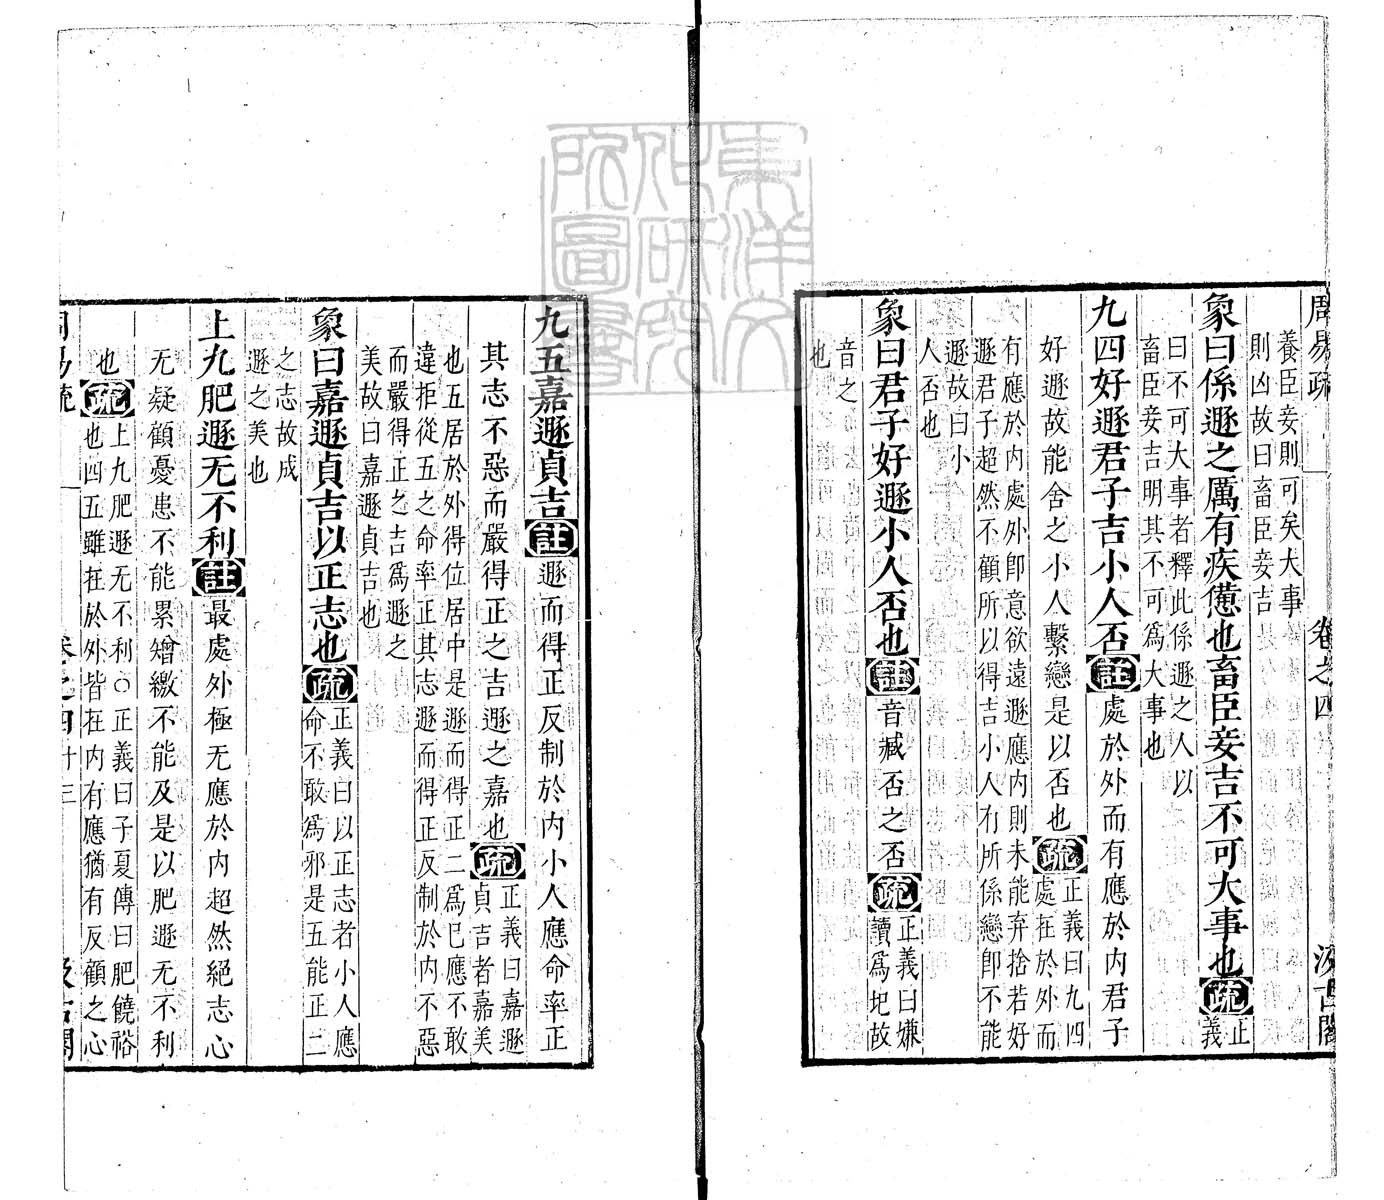 周易疏 卷之四 汲古閣
養臣妾則可矣大事
則凶故曰畜臣妾吉
象曰係遯之厲有疾憊也畜臣妾吉不可大事也疏正
義
曰不可大事者釋此係遯之人以
畜臣妾吉明其不可爲大事也
九四好遯君子吉小人否註處於外而有應於內君子
好遯故能舍之小人繫戀是以否也疏正義曰九四
處在於外而
有應於內處外卽意欲遠遯應內則未能弃捨若好
遯君子超然不顧所以得吉小人有所係戀卽不能
遯故曰小
人否也
象曰君子好遯小人否也註音臧否之否疏正義曰嫌
讀爲圯故
音之
也
九五嘉遯貞吉註遯而得正反制於內小人應命率正
其志不惡而嚴得正之吉遯之嘉也疏正義曰嘉遯
貞吉者嘉美
也五居於外得位居中是遯而得正二爲已應不敢
違拒從五之命率正其志遯而得正反制於內不惡
而嚴得正之吉爲遯之
美故曰嘉遯貞吉也
象曰嘉遯貞吉以正志也疏正義曰以正志者小人應
命不敢爲邪是五能正二
之志故成
遯之美也
上九肥遯无不利註最處外極无應於內超然絕志心
无疑顧憂患不能累矰繳不能及是以肥遯无不利
也疏上九肥遯无不利○正義曰子夏傳曰肥饒裕
也四五雖在於外皆在內有應猶有反顧之心
周易疏 卷之四 十三 汲古閣
東洋文化研究所圖書